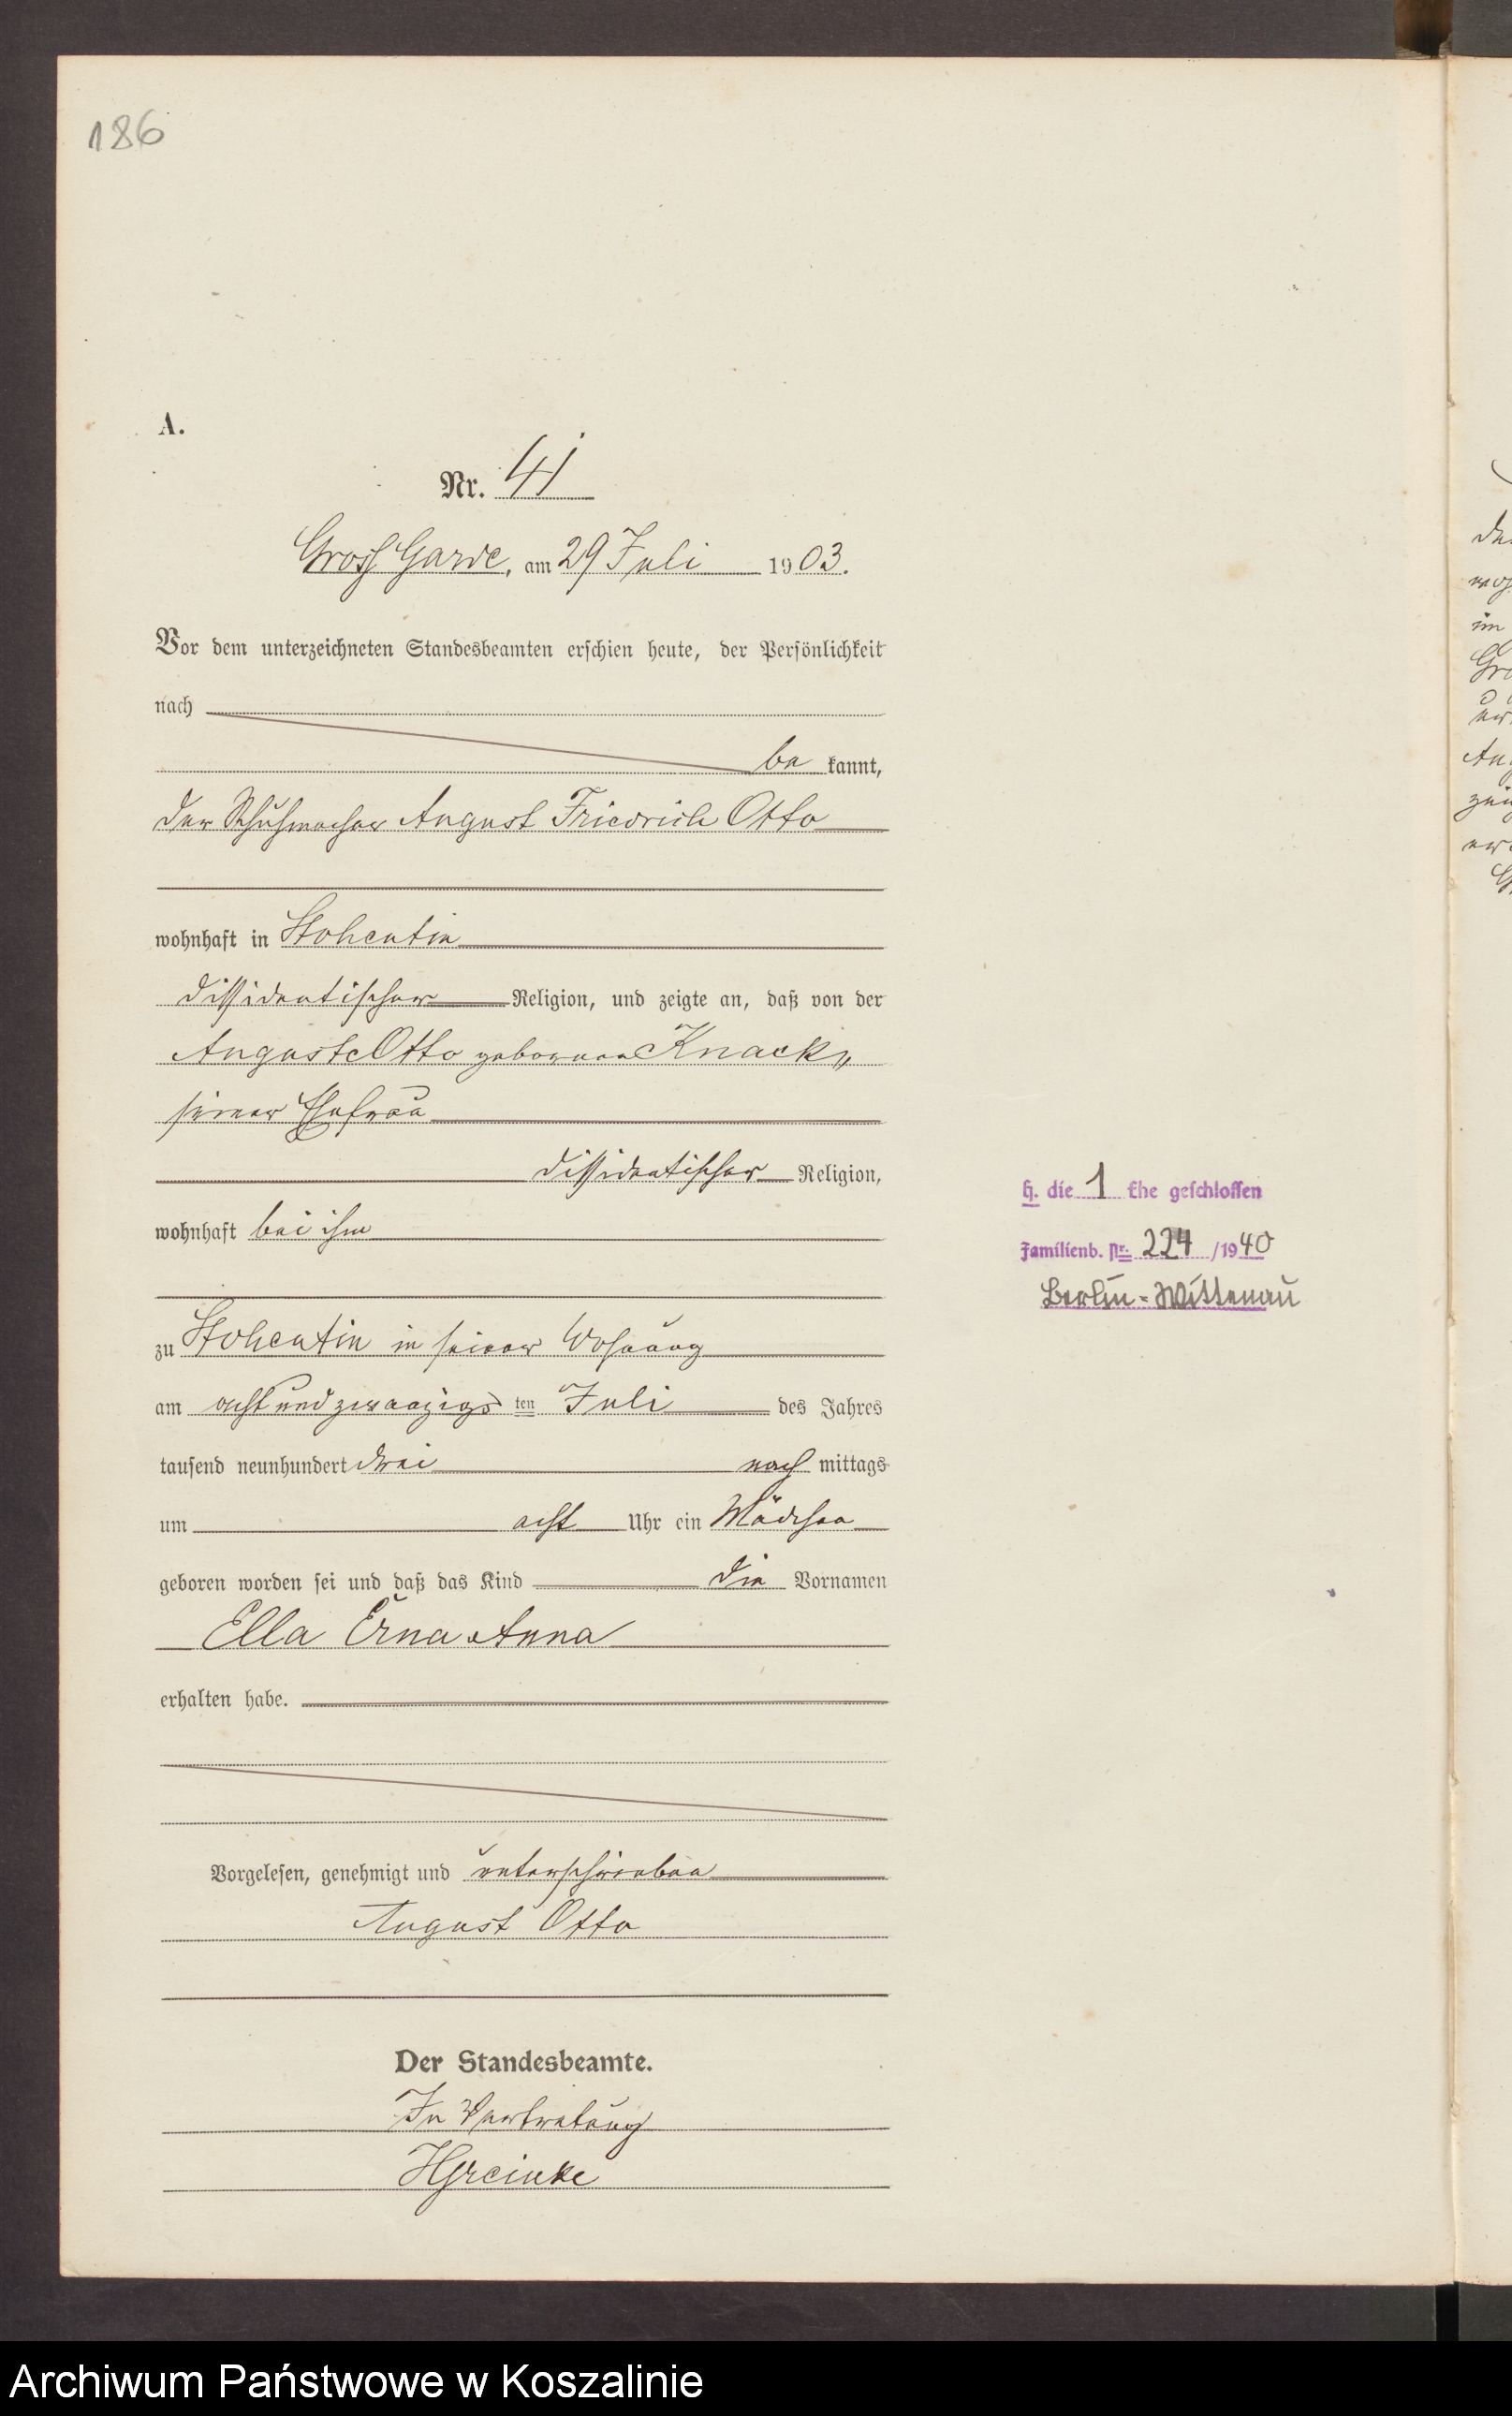 186
A.
Nr. 41
Gross Garde, am 29 Juli 1903.
Vor dem unterzeichneten Standesbeamten erschien heute, der Persönlichkeit
nach
be kannt,
der Schuhmacher August Friedrich Otto
wohnhaft in Stohentin
dissidentischer Religion, und zeigte an, daß von der
Auguste Otto geborenen Knack,
seiner Ehefrau
dissidentischer Religion,
wohnhaft bei ihm
zu Stohentin in seiner Wohnung
am acht und zwanzigs ten Juli des Jahres
tausend neunhundert drei nach mittags
um acht Uhr ein Mädchen
geboren worden sei und daß das Kind die Vornamen
Ella Erna Anna
erhalten habe.
Vorgelesen, genehmigt und unterschrieben
August Otto
Der Standesbeamte.
In Vertretung
H. die 1 Ehe geschlossen
Familienb. Nr. 224 /1940
Berlin-Wittenau
Archiwum Państwowe w Koszalinie